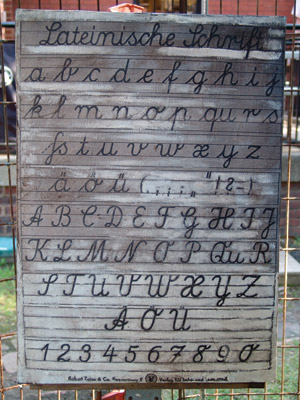 Lateinische Schrift
a b c d e f g h i j
k l m n o p qu r s
ſs t u v w x y z
ä ö ü ( , ; . : „ " ! ? - )
A B C D E F G H I J
K L M N O P Qu R
S T U V W X Y Z
Ä Ö Ü
1 2 3 4 5 6 7 8 9 0
Robert &